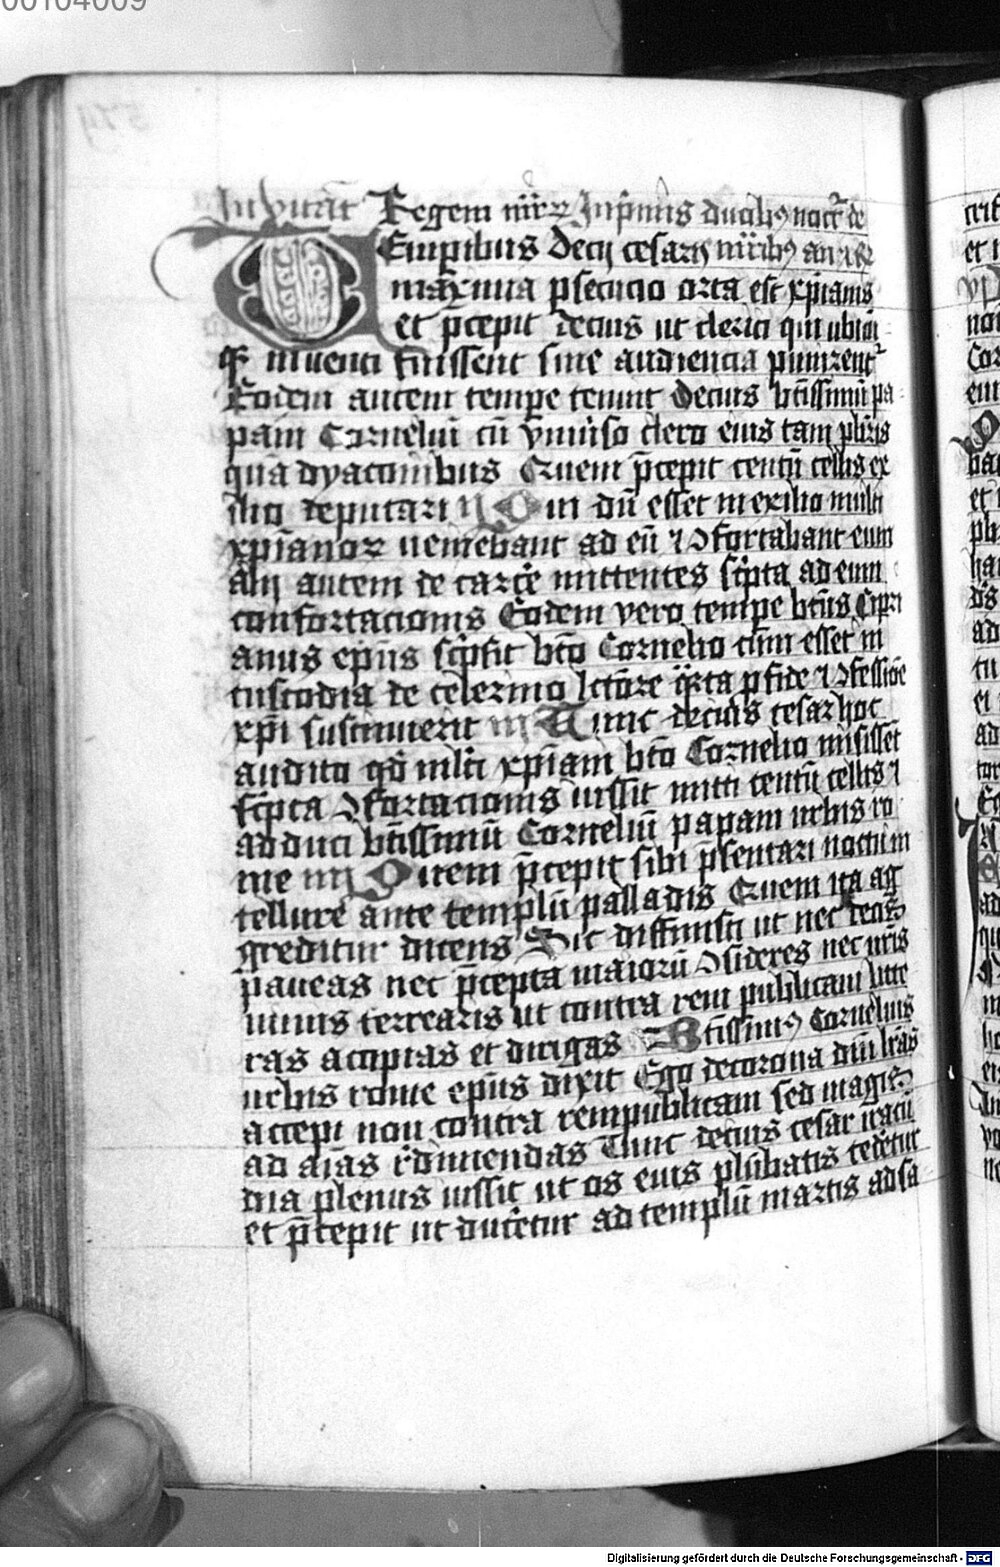 00104009
Regem mr̄m Inp̄mis
Empibus Decij cesaris
maxima psecucio orta est xp̄ianis
et p̄cepit decius ut clerici qui ubicū
q̄ inuenti fuissent sine audiencia punirent᷑
Eodem autem tempe tenuit Decius bt̄issimū pa
pam Corneliū cū vniuiso clero eius tam pb̄ris
quā dyaconibus Quem p̄cepit centū cellis ex
ilio deputari ij Qui dū esset in exilio multi
xp̄ianoꝝ ueniebant ad eū ⁊ ꝯfortabant eum
alij autem de carcē mittentes sc̄pta ad eum
confortacionis Eodem vero tempe bt̄us Cipri
anus ep̄us sc̄psit bt̄o Cornelio cum esset in
custodia de celerino lc̄ore q̄nta p fide ⁊ ꝯfessiōe
xp̄i sustinuerit iij Tunc decius cesar hoc
audito qd̄ mlti xp̄iani bt̄o Cornelio misisset
sc̄pta ꝯfortacionis iussit mitti centū cellis ⁊
adduci bt̄issimū Corneliū papam urbis ro
me iiij Quem p̄cepit sibi p̄sentari noctu in
tellure ante templū palladis Quem ita ag
greditur dicens Sic diffinisti ut nec deos
paueas nec p̄cepta maiorū ꝯsideres nec nr̄is
minis terrearis ut contra rem publicam litte
ras accipias et dirigas Bt̄issimꝰ Cornelius
urbis rome ep̄us dixit Ego de corona dn̄i lr̄as
accepi non contra rempublicam sed magis
ad aīas rēdimendas Tunc decius cesar iracū
dia plenus iussit ut os eius plūbatis cedētur
et p̄cepit ut ducētur ad templū martis ad sa
Digitalisierung gefördert durch die Deutsche Forschungsgemeinschaft - DFG